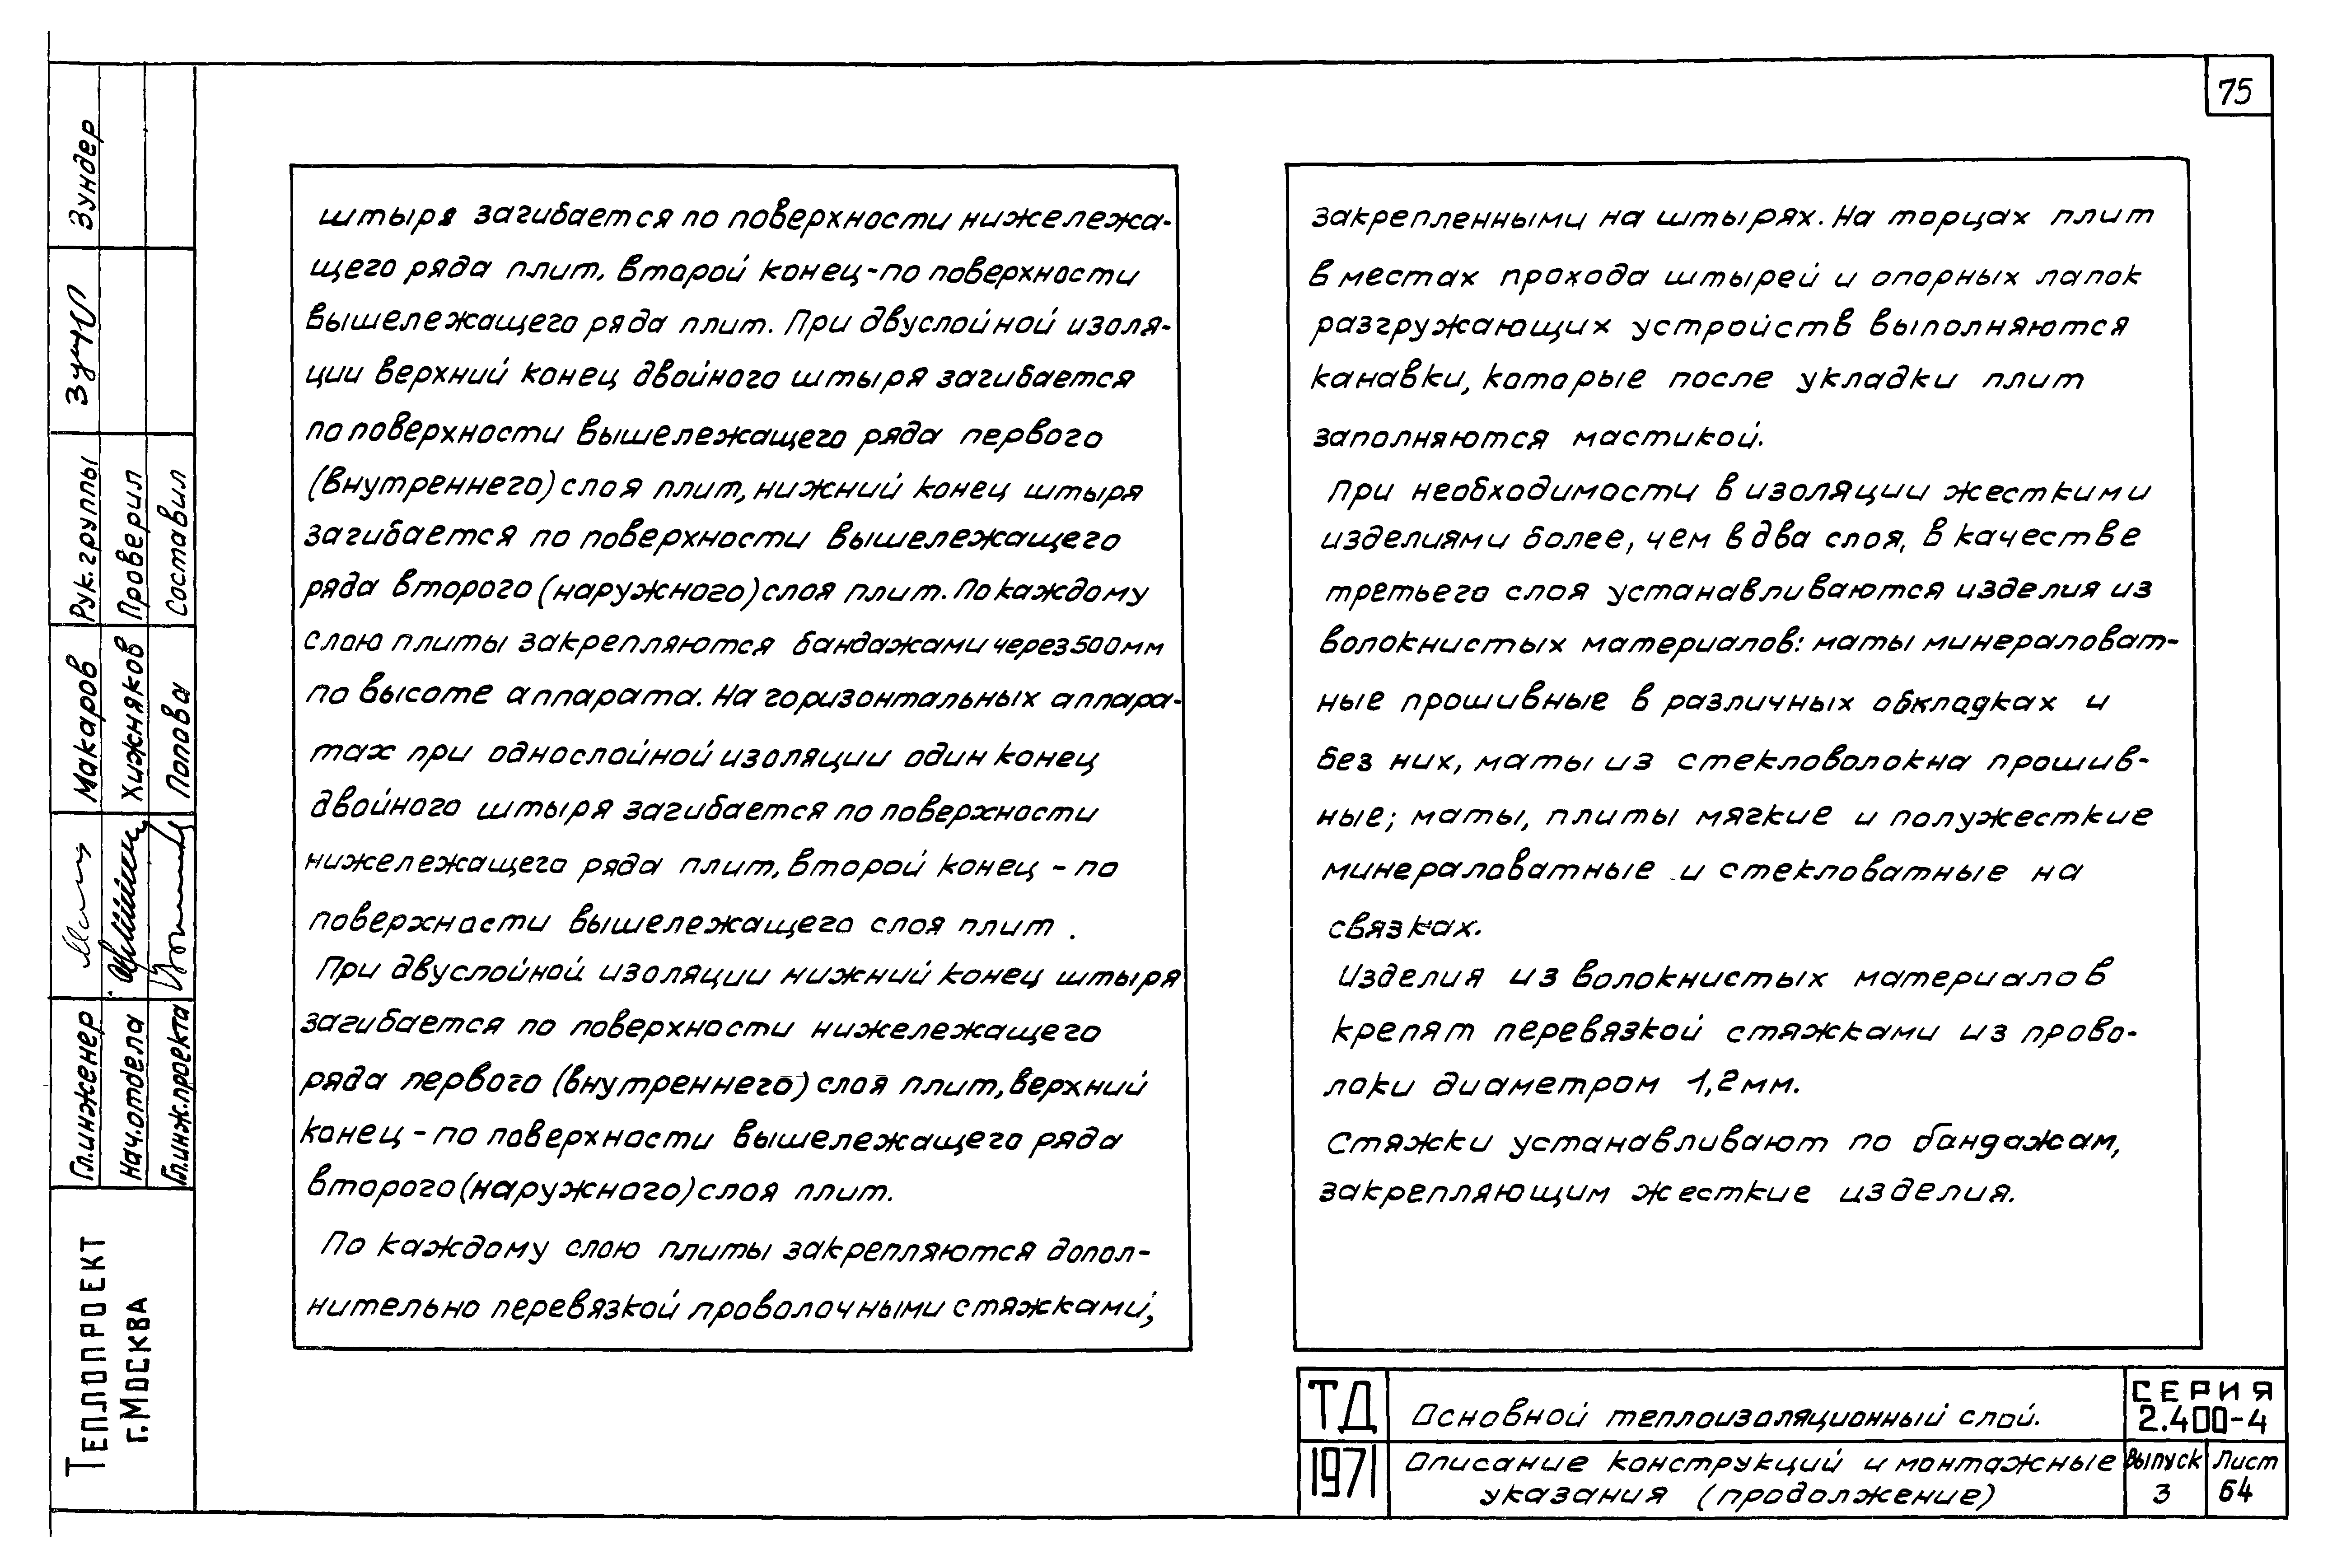 75
штыря загибается по поверхности нижележа-
щего ряда плит, второй конец - по поверхности
вышележащего ряда плит. При двуслойной изоля-
ции верхний конец двойного штыря загибается
по поверхности вышележащего ряда первого
(внутреннего) слоя плит, нижний конец штыря
загибается по поверхности вышележащего
ряда второго (наружного) слоя плит. По каждому
слою плиты закрепляются бандажами через 500 мм
по высоте аппарата. На горизонтальных аппара-
тах при однослойной изоляции один конец
двойного штыря загибается по поверхности
нижележащего ряда плит, второй конец - по
поверхности вышележащего слоя плит.
При двуслойной изоляции нижний конец штыря
загибается по поверхности нижележащего
ряда первого (внутреннего) слоя плит, верхний
конец - по поверхности вышележащего ряда
второго (наружного) слоя плит.
По каждому слою плиты закрепляются допол-
нительно перевязкой проволочными стяжками,
закрепленными на штырях. На торцах плит
в местах прохода штырей и опорных лапок
разгружающих устройств выполняются
канавки, которые после укладки плит
заполняются мастикой.
При необходимости в изоляции жесткими
изделиями более, чем в два слоя, в качестве
третьего слоя устанавливаются изделия из
волокнистых материалов: маты минераловат-
ные прошивные в различных обкладках и
без них, маты из стекловолокна прошив-
ные; маты, плиты мягкие и полужесткие
минераловатные и стекловатные на
связках.
Изделия из волокнистых материалов
крепят перевязкой стяжками из прово-
локи диаметром 1,2 мм.
Стяжки устанавливают по бандажам,
закрепляющим жесткие изделия.
ТД
1971
Основной теплоизоляционный слой.
Описание конструкций и монтажные
указания (продолжение)
СЕРИЯ
2.400-4
Выпуск
3
Лист
64
Теплопроект
г. Москва
Гл. инженер
Макаров
Рук. группы
Зундер
Нач. отдела
Хижняков
Проверил
Гл. инж. проекта
Попова
Составил